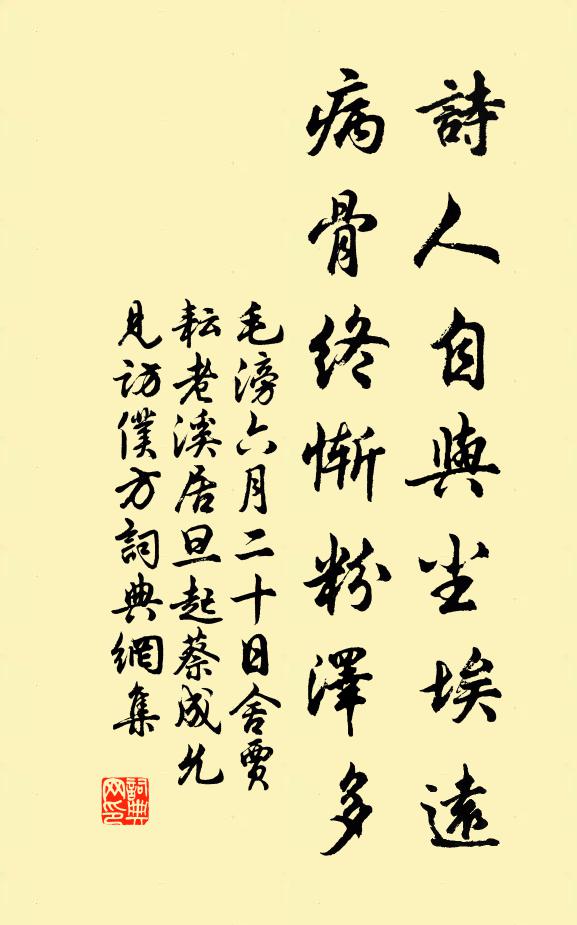 詩人自與尘埃遠
病骨終慚粉澤多
毛滂六月二十日舍賈
耘老溪居旦起蔡成允
見訪僕方詞典網集
詞典网印